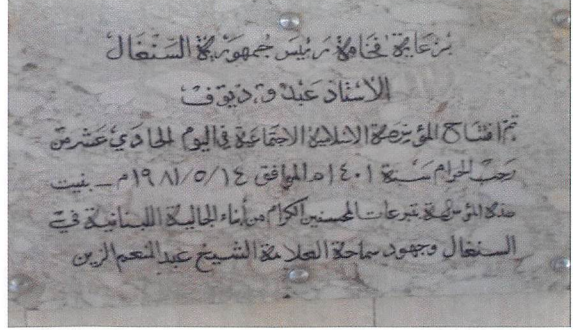 برعاية فخامة رئيس جمهورية السنغال
الاستاذ عبده ديوف
تم افتتاح المؤسسة الاسلامية الاجتماعية في اليوم الحادي عشر من
رجب الحرام سنة ١٤٠١ه الموافق ١٩٨١/٥/١٤م _ بنيت
هذه المؤسسة بتبرعات المحسنين الكرام من أبناء الجالية اللبنانية في
السنغال وجهود سماحة العلامة الشيخ عبدالمنعم الزين